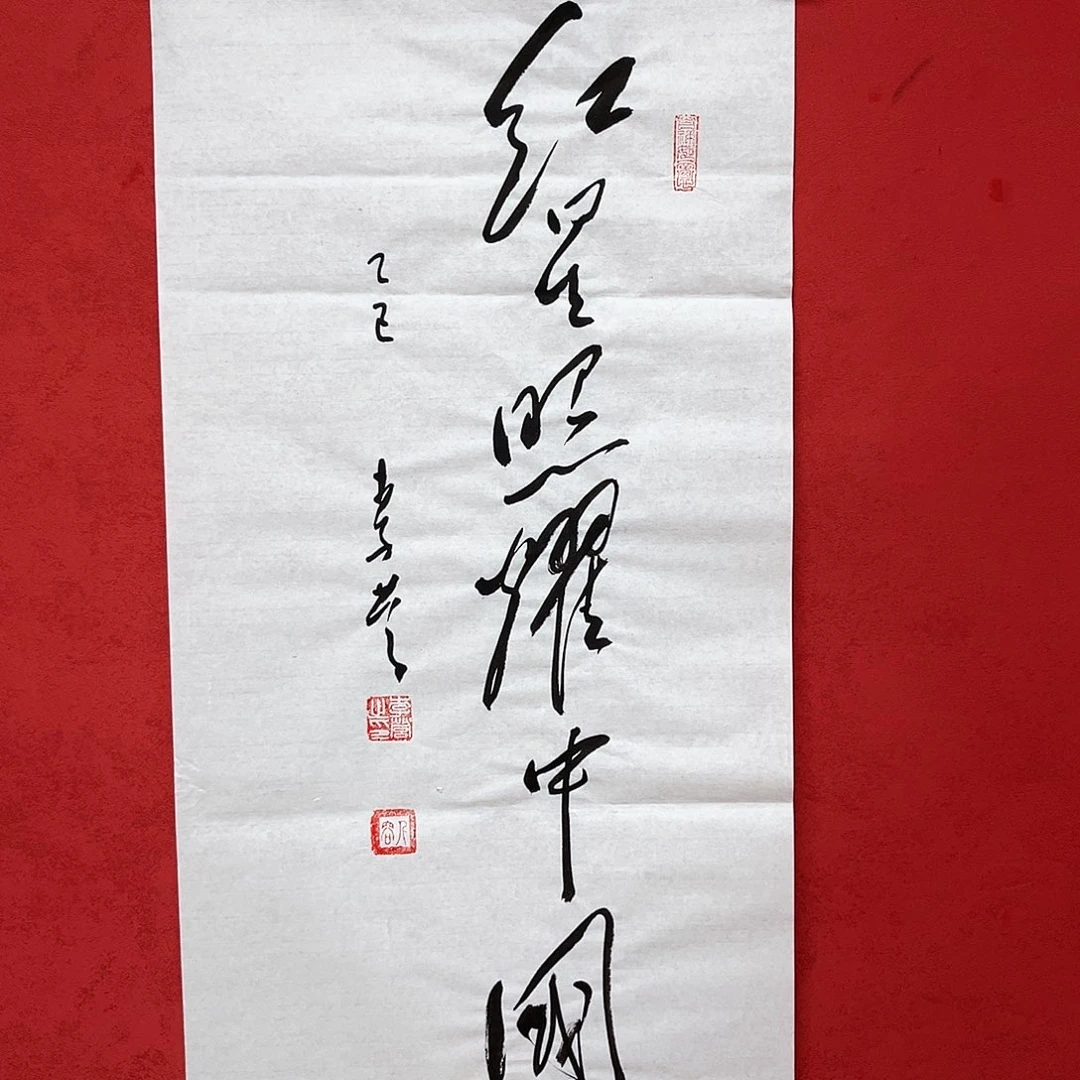 红星照耀中國
乙巳